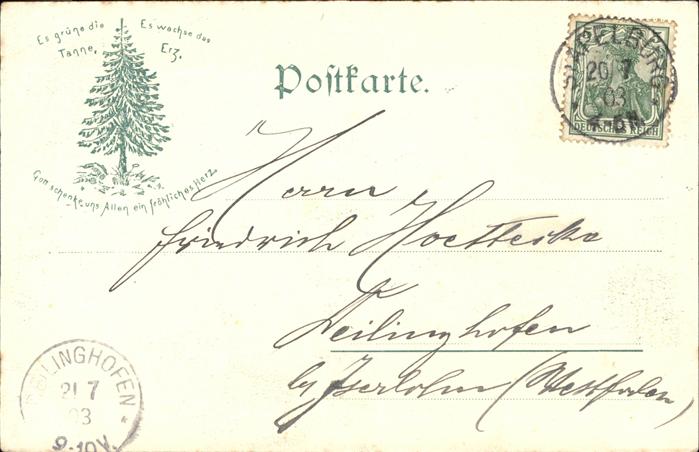 Es grüne die Tanne,
Es wachse das Erz,
Gott schenke uns Allen ein fröhliches Herz
Postkarte.
20 7
03
DEUTSCHES REICH
Herrn
Friedrich
Deilinghofen
by Iserlohn (Westfalen)
DEILINGHOFEN
21 7
03
9-10V.